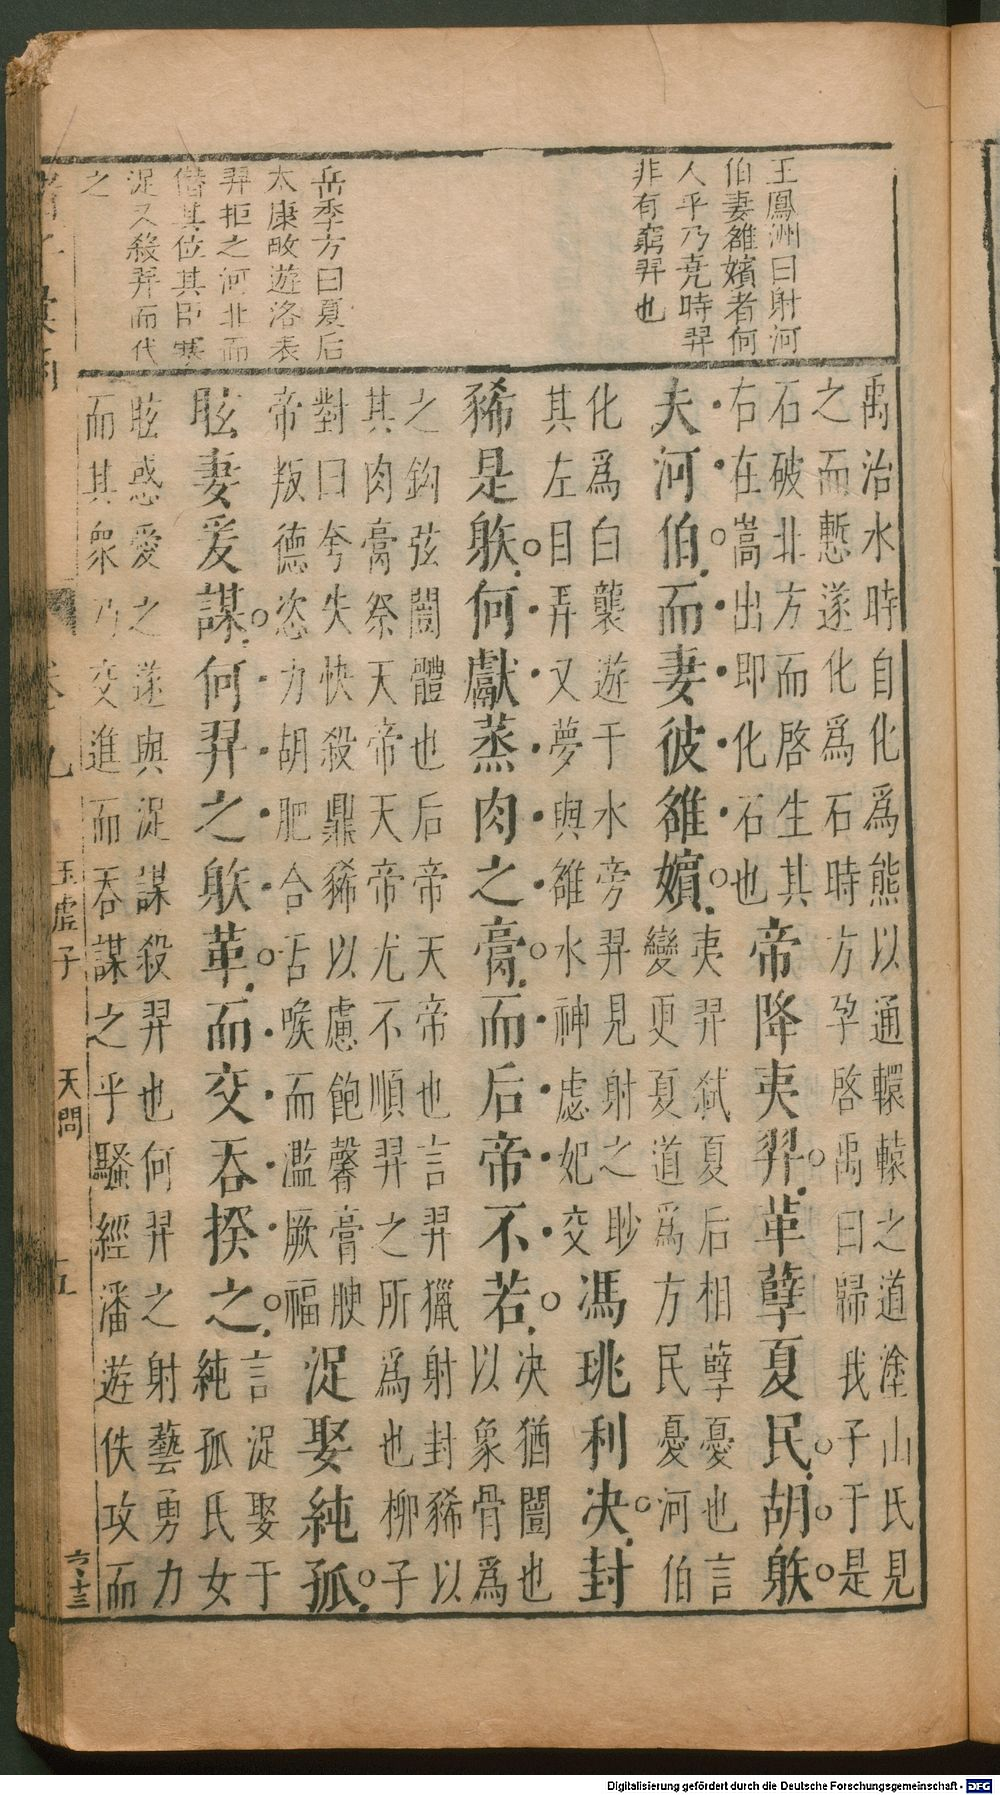 王鳳洲曰射河
伯妻雒嬪者何
人乎乃堯時羿
非有窮羿也
岳季方曰夏后
太康畋遊洛表
羿拒之河北而
僭其位其臣寒
浞又殺羿而代
之
禹治水時自化為熊以通轘轅之道塗山氏見
之而慙遂化爲石時方孕啓禹曰歸我子于是
石破北方而啓生其
右在嵩出即化石也
帝降夷羿。革孽夏民。胡躲。
夫河伯。而妻彼雒嬪。
夷羿弒夏后相孽憂也言
變更夏道爲方民憂河伯
化爲白襲遊于水旁羿見射之眇
其左目弄又夢與雒水神虙妃交
馮珧利决。封
豨是躲。何獻蒸肉之膏。而后帝不若。
决猶闓也
以象骨爲
之鈎弦闓體也后帝天帝也言羿獵射封豨以
其肉膏祭天帝天帝尤不順羿之所爲也柳子
對曰夸失快殺鼎豨以慮飽馨膏腴
帝叛德恣力胡肥合舌喉而濫厥福
浞娶純孤。
眩妻爰謀。何羿之躲革。而交吞揆之。
言浞娶于
純孤氏女
眩惑愛之遂與浞謀殺羿也何羿之射藝勇力
而其衆乃交進而吞謀之乎騷經潘遊佚攻而
卷九
玉虛子
天問
六・十三
Digitalisierung gefördert durch die Deutsche Forschungsgemeinschaft - DFG